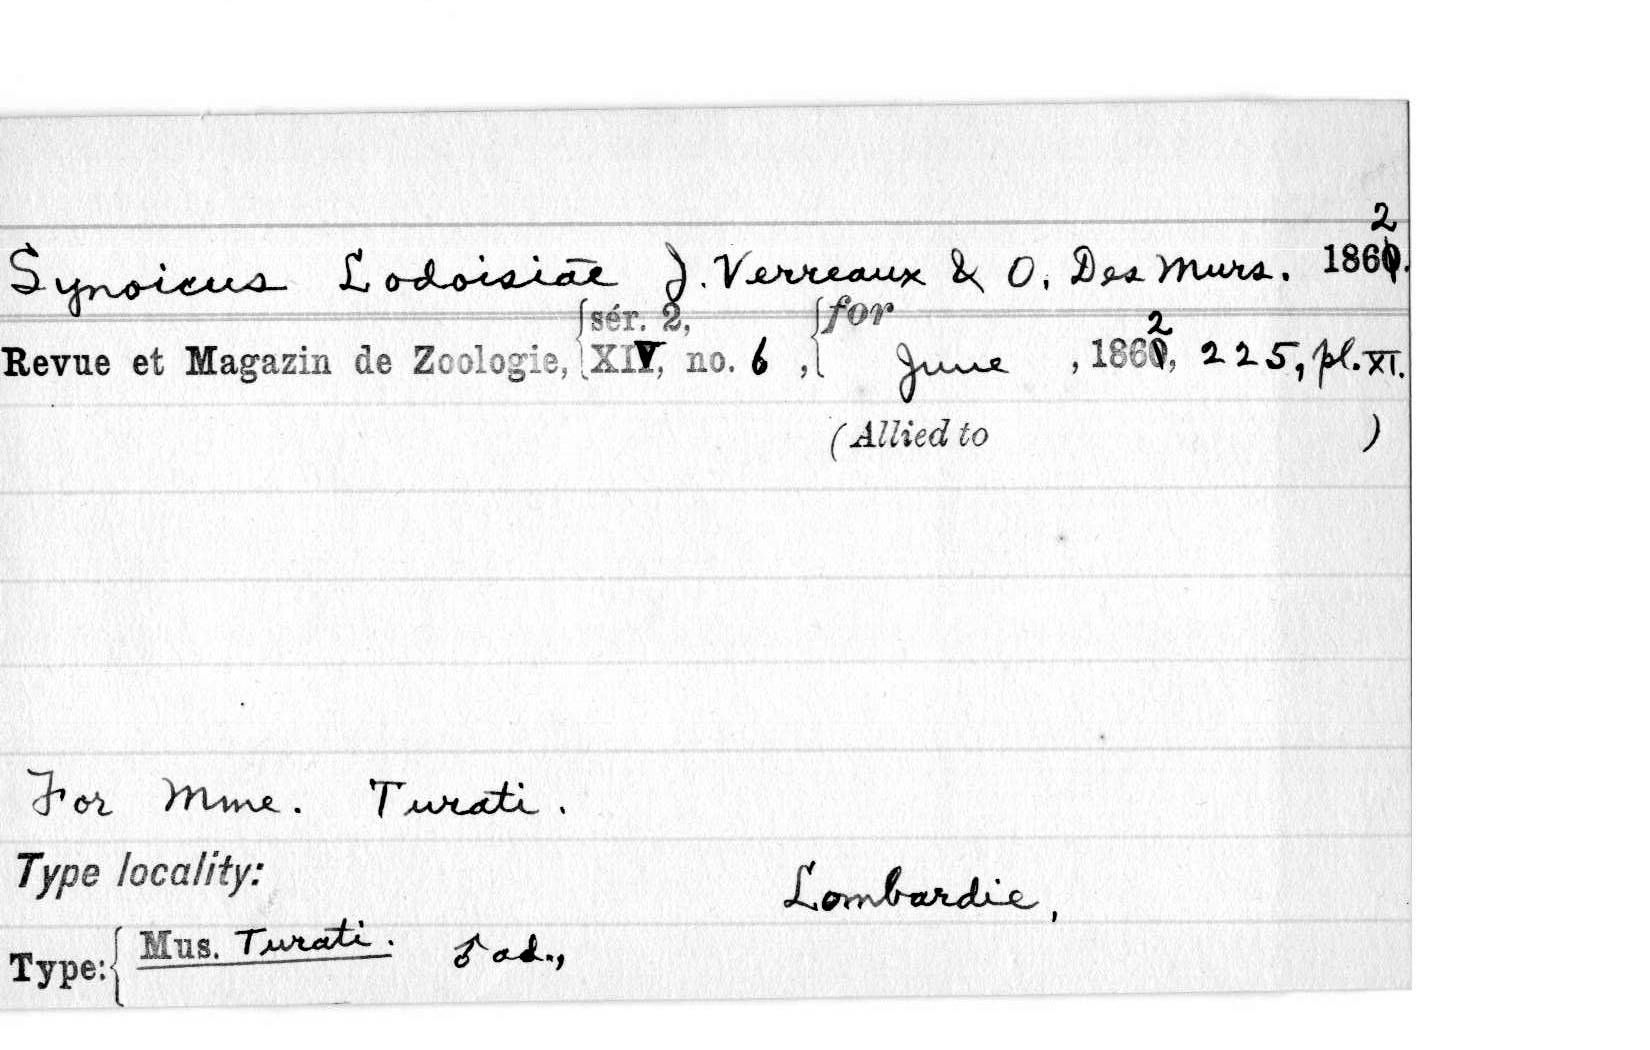 Synoicus Lodoisiae J. Verreaux & O. Des Murs. 1862.
Revue et Magazin de Zoologie, {sér. 2, XIV, no. 6, {for June, 1862, 225, pl. XI.
(Allied to )
For Mme. Turati.
Type locality: Lombardie,
Type: {Mus. Turati. ♂ ad.,